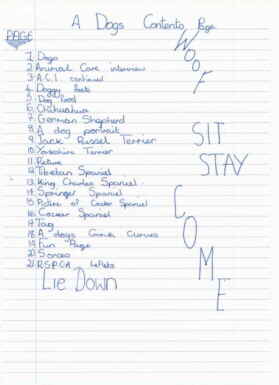 A Dogs Contents Page
PAGE
WOOF
1. Dogs
2. Animal Care interview
3. A.C.I. continued
4. Doggy facts
5. Dog food
6. Chihuahua
7. German Shepherd
8. A dog portrait
9. Jack Russel Terrier
10. Yorkshire Terrier
11. Picture
12. Tibetan Spaniel
13. King Charles Spaniel
14. Springer Spaniel
15. Picture of Cocker Spaniel
16. Cocker Spaniel
17.
18. A dogs
19. Fun Page
20.
21. R.S.P.C.A Leflets
SIT
STAY
COME
Lie Down